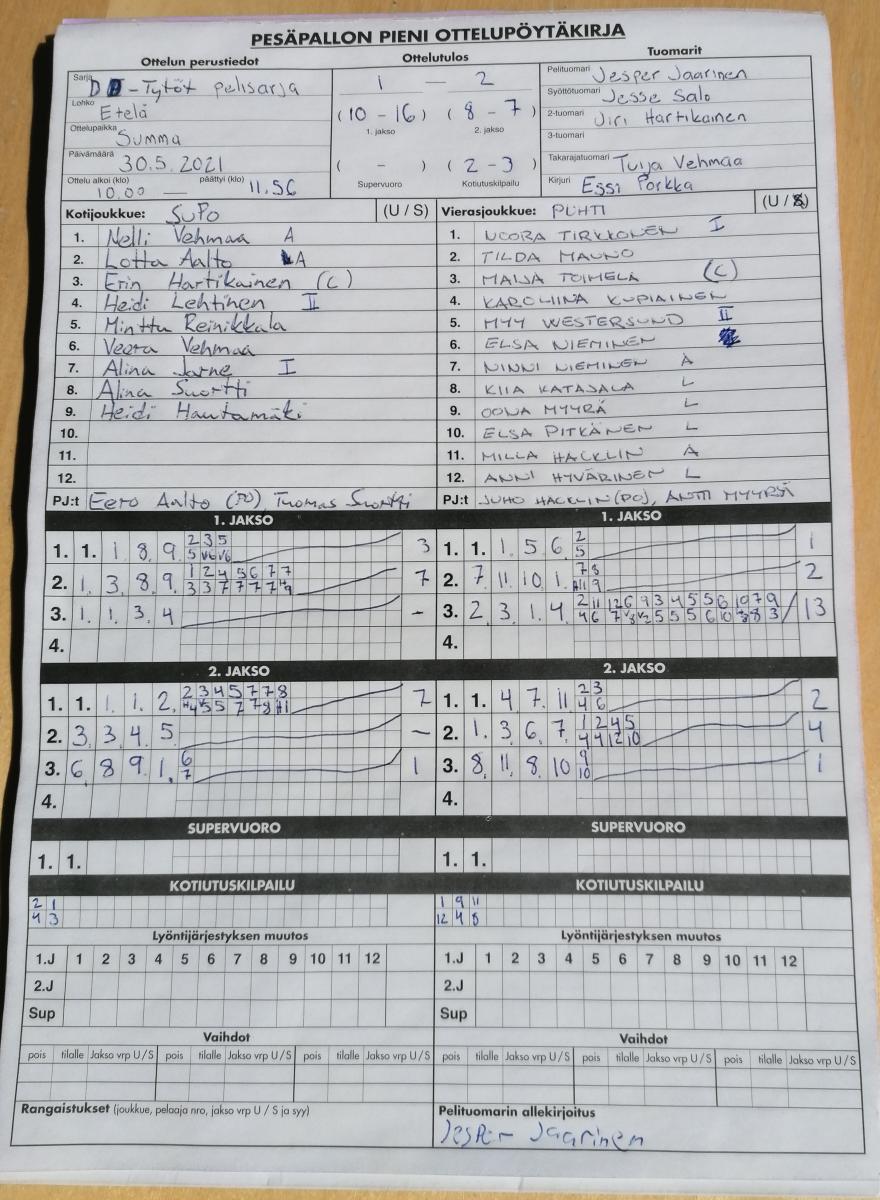 PESÄPALLON PIENI OTTELUPÖYTÄKIRJA
Ottelun perustiedot
Sarja D -Tytöt pelisarja
Lohko Etelä
Ottelupaikka Summa
Päivämäärä 30.5.2021
Ottelu alkoi (klo) 10.00 — päättyi (klo) 11.56
Ottelutulos
1 — 2
(10 - 16) (8 - 7)
1. jakso 2. jakso
( - ) (2 - 3)
Supervuoro Kotiutuskilpailu
Tuomarit
Pelituomari Jesper Jaarinen
Syöttötuomari Jesse Salo
2-tuomari Jiri Hartikainen
3-tuomari
Takarajatuomari Tuija Vehmaa
Kirjuri Essi Porkka
Kotijoukkue: SuPo (U / S)
1. Nelli Vehmaa A
2. Lotta Aalto A
3. Erin Hartikainen (C)
4. Heidi Lehtinen II
5. Minttu Reinikkala
6. Veera Vehmaa
7. Alina Jarne I
8. Alina Suortti
9. Heidi Hautamäki
10.
11.
12.
PJ:t Eero Aalto (PO), Tuomas Suortti
Vierasjoukkue: PUHTI (U / S)
1. NOORA TIRKKONEN I
2. TILDA MAUNO
3. MAIJA TOIMELA (C)
4. KAROLIINA KUPIAINEN
5. MYY WESTERSUND II
6. ELSA NIEMINEN
7. NINNI NIEMINEN A
8. KIIA KATAJALA L
9. OONA MYYRÄ L
10. ELSA PITKÄNEN L
11. MILLA HACKLIN A
12. ANNI HYVÄRINEN L
PJ:t JUHO HACKLIN (PO), ANTTI MYYRÄ
1. JAKSO
1. 1. 1 8 9 2 3 5 3
5 V6 V6
2. 1 3 8 9 1 2 4 5 6 7 7 7
3 3 7 7 7 7
3. 1 1 3 4 –
4.
1. JAKSO
1. 1. 1 5 6 2 1
5
2. 7 11 10 1 7 8 2
9
3. 2 3 1 4 2 11 12 6 9 3 4 5 5 6 10 7 9 13
4 6 7 V3 V2 5 5 5 6 10 8 3
4.
2. JAKSO
1. 1. 1 1 2 2 3 4 5 7 7 8 7
5 5 7 7
2. 3 3 4 5 –
3. 6 8 9 1 6 1
7
4.
2. JAKSO
1. 1. 4 7 11 2 3 2
4 6
2. 1 3 6 7 1 2 4 5 4
4 4 12 10
3. 8 11 8 10 9 1
10
4.
SUPERVUORO
1. 1.
SUPERVUORO
1. 1.
KOTIUTUSKILPAILU
2 1
4 3
KOTIUTUSKILPAILU
1 9 11
12 4 8
Lyöntijärjestyksen muutos
1.J 1 2 3 4 5 6 7 8 9 10 11 12
2.J
Sup
Lyöntijärjestyksen muutos
1.J 1 2 3 4 5 6 7 8 9 10 11 12
2.J
Sup
Vaihdot
pois tilalle Jakso vrp U / S pois tilalle Jakso vrp U / S pois tilalle Jakso vrp U / S
Vaihdot
pois tilalle Jakso vrp U / S pois tilalle Jakso vrp U / S pois tilalle Jakso vrp U / S
Rangaistukset (joukkue, pelaaja nro, jakso vrp U / S ja syy)
Pelituomarin allekirjoitus
Jesper Jaarinen